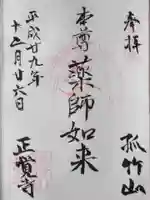 参拝
孤竹山
本尊薬師如来
平成廿九年
十二月廿六日
正覚寺